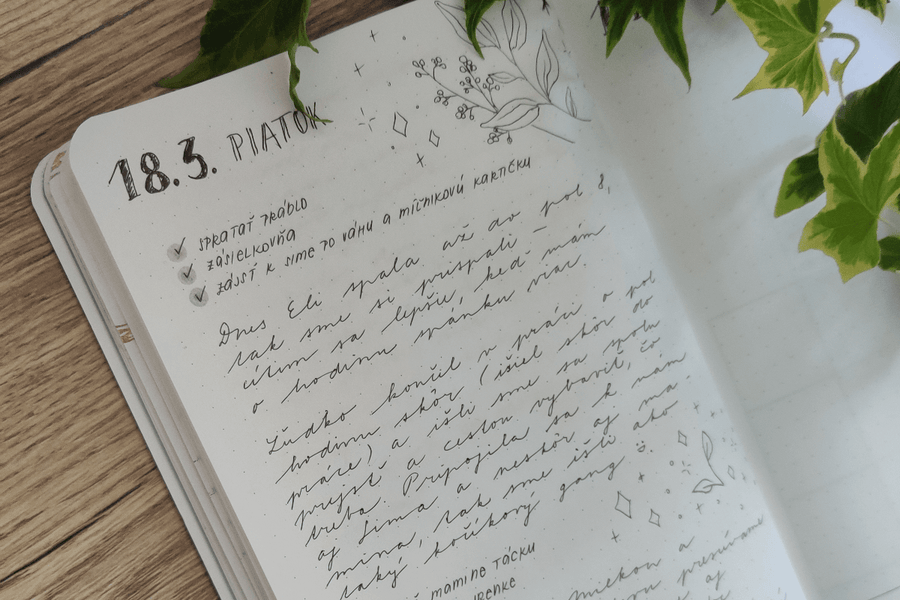 18.3. PIATOK
SPRATAŤ PRÁDLO
ZÁSIELKOVŇA
ZÁJSŤ K SIME PO VÁHU A MÍĽNIKOVÚ KARTIČKU
Dnes Eli spala až do pol 8,
tak sme si prispali – mám
cítim sa lepšie, keď
o hodinu spánku viac.
Ľudko končil v práci o pol
hodinu skôr (išiel skôr do
práce) a išli sme sa spolu
prejsť a cestou vybaviť, čo
treba. Pripojila sa k nám
aj Sima a neskôr aj ma-
mina, tak sme išli ako
taký kočíkový gang
MAMINE TÁCKU
mliekom a
presúvame
aj